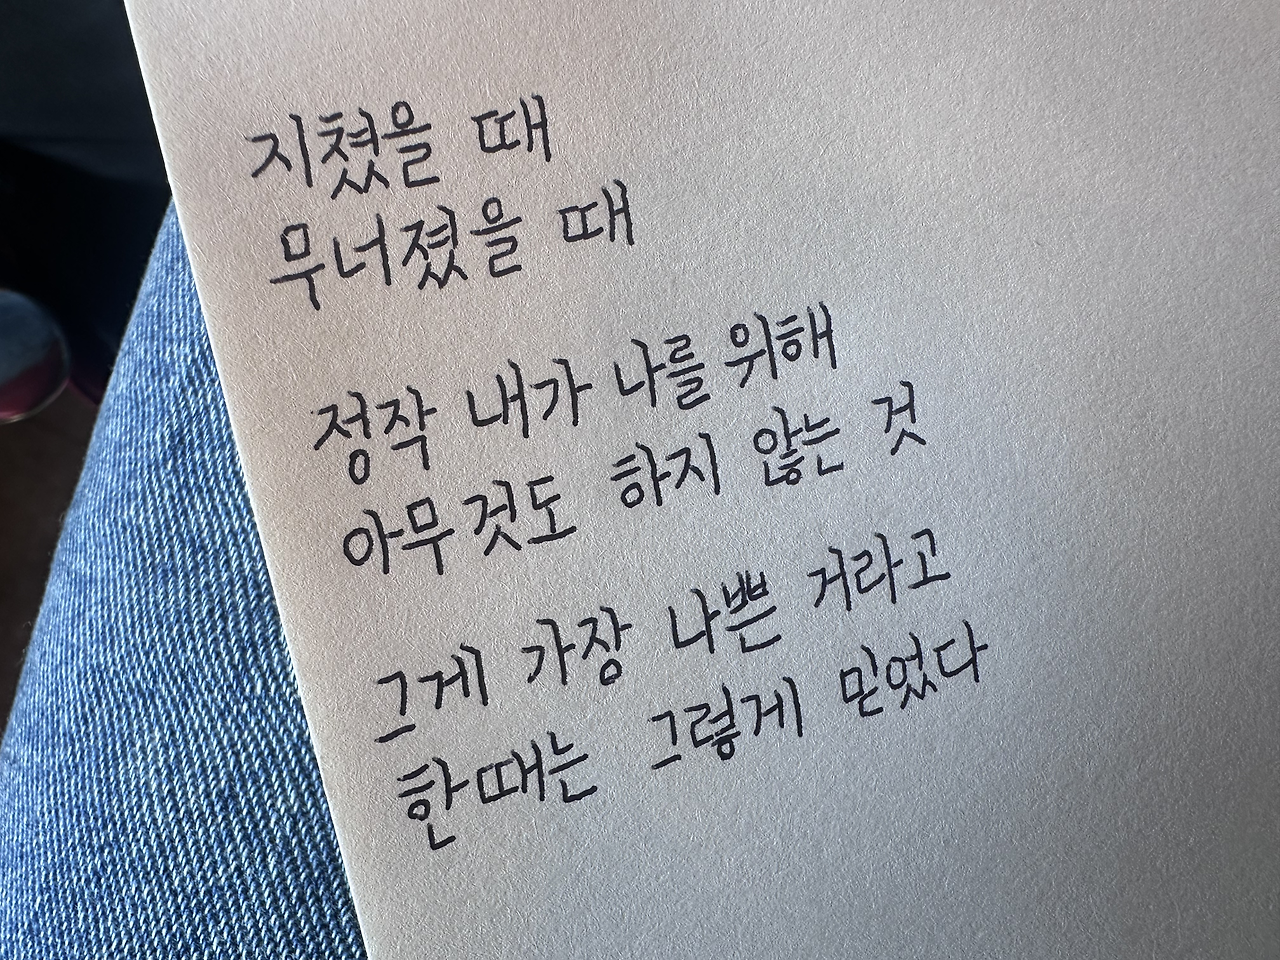 지쳤을 때
무너졌을 때
정작 내가 나를 위해
아무것도 하지 않는 것
그게 가장 나쁜 거라고
한때는 그렇게 믿었다